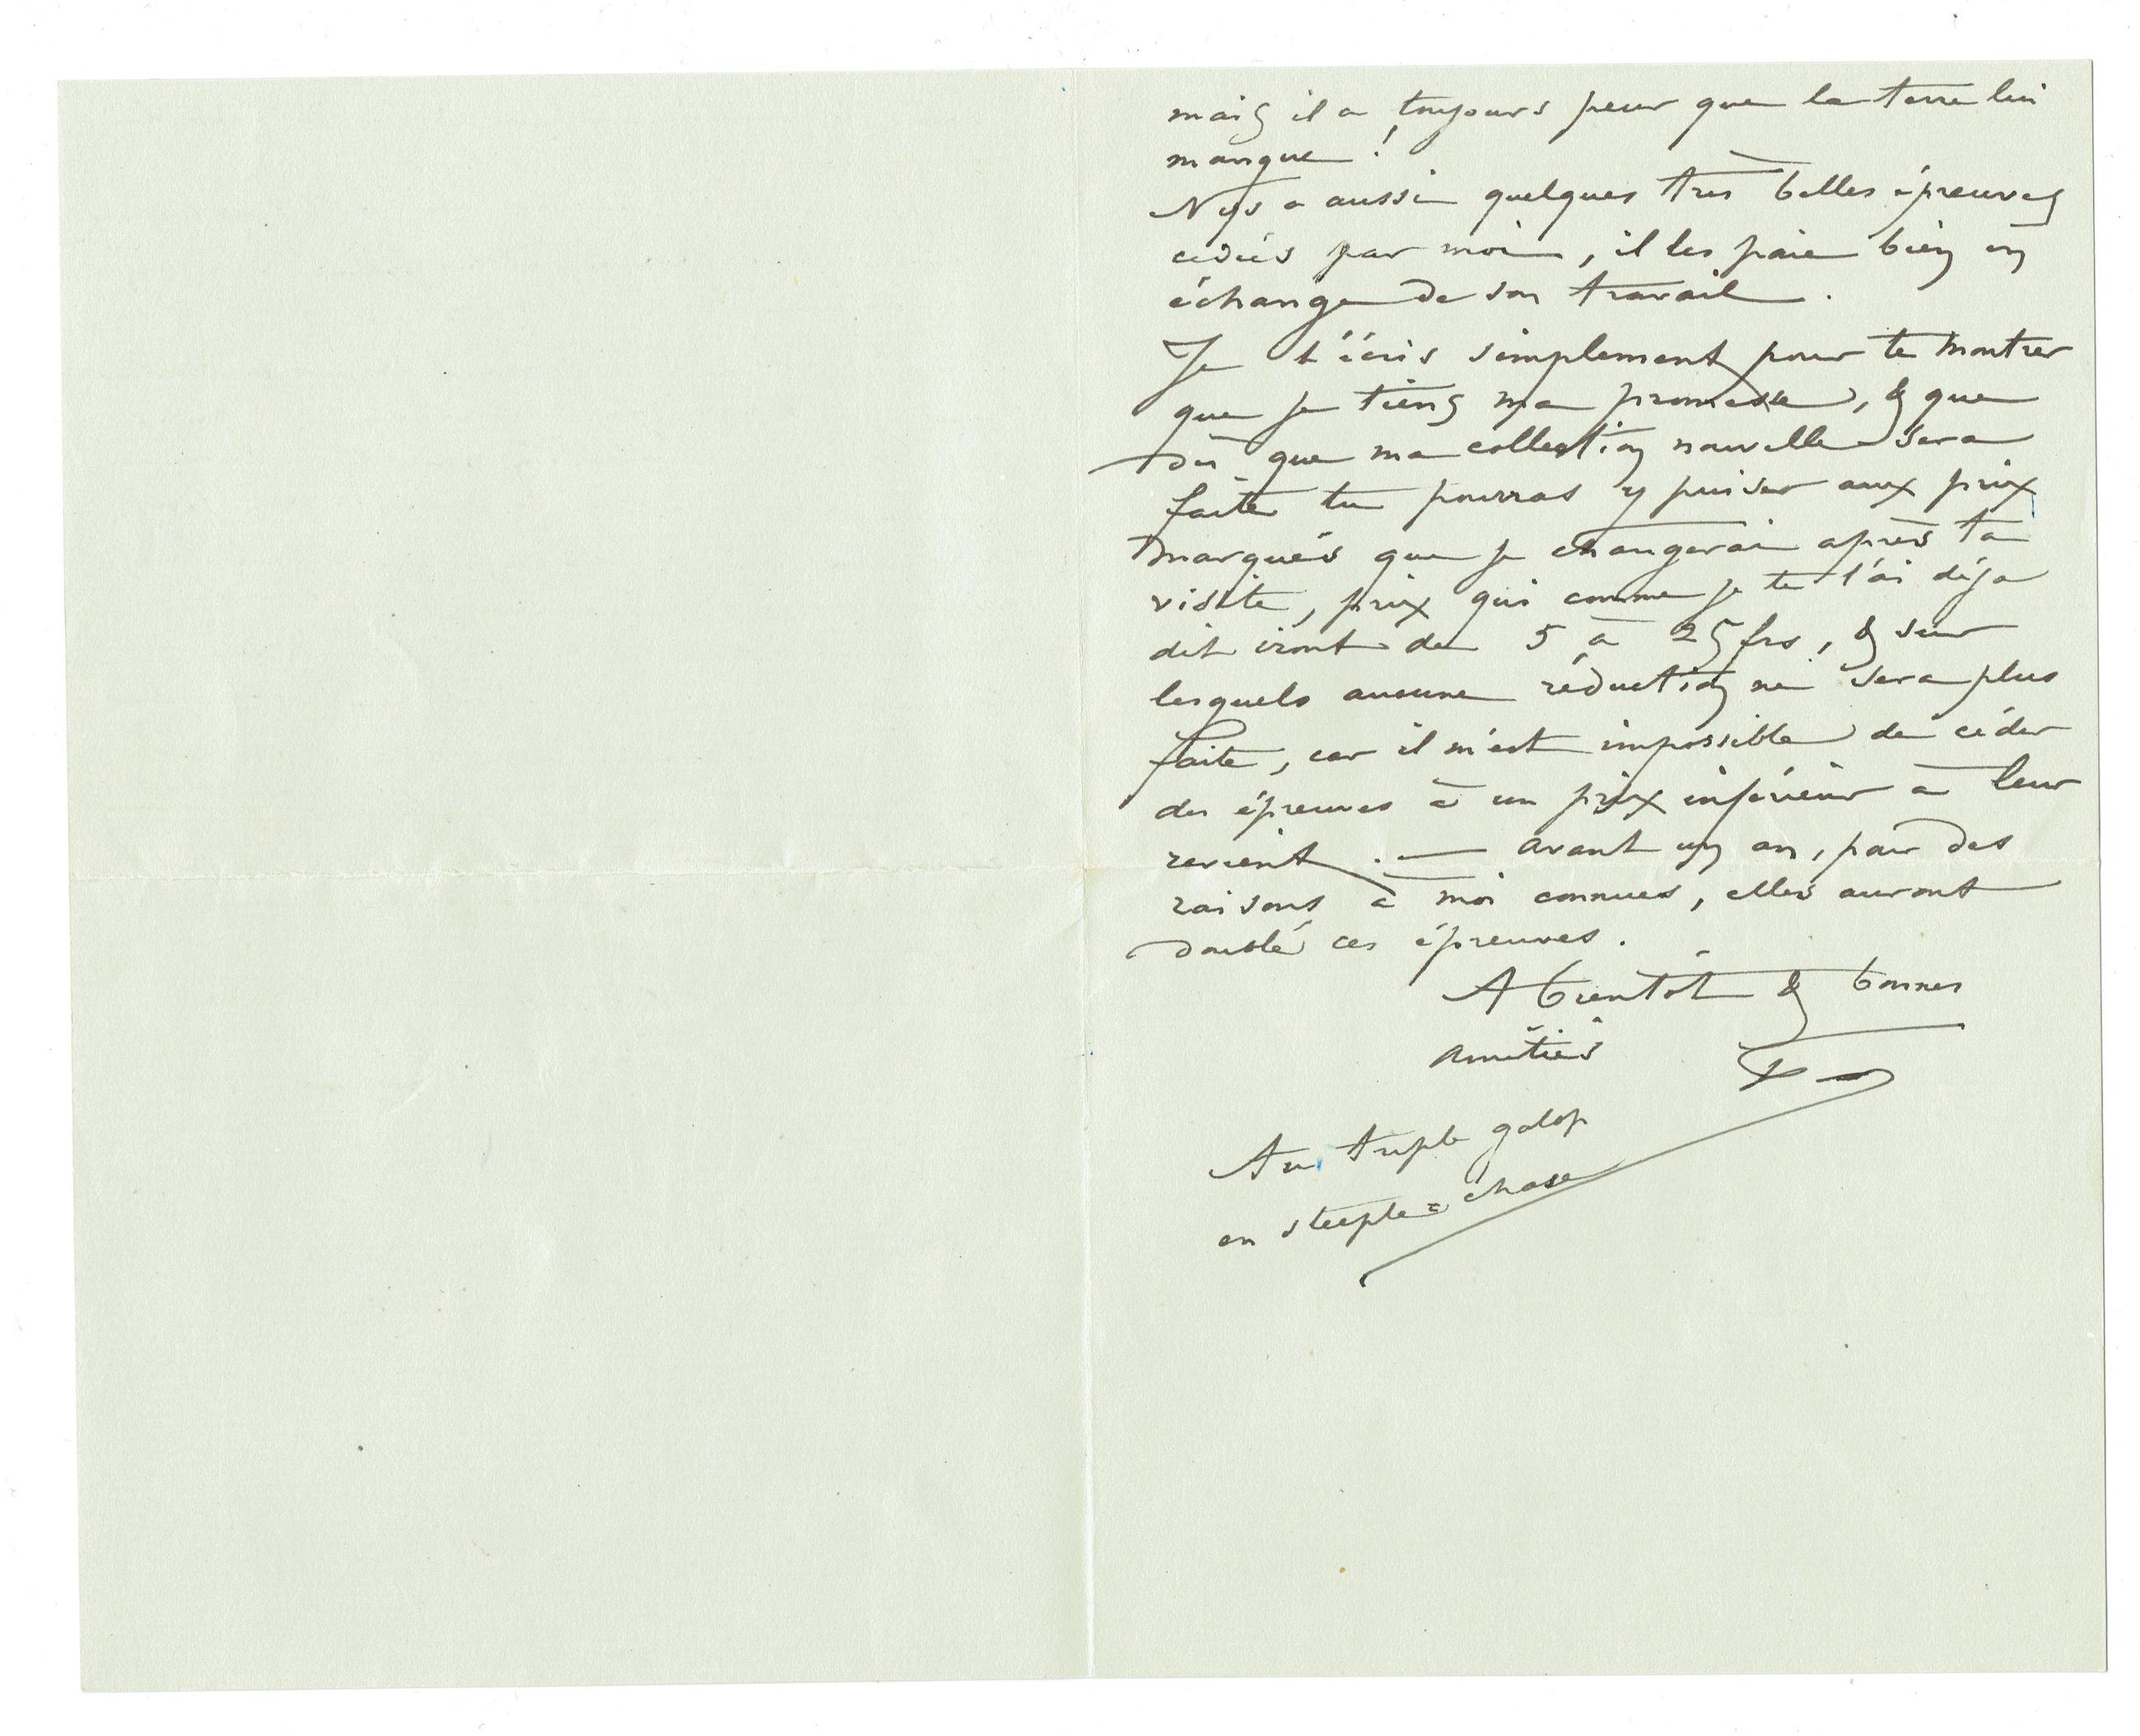 mais il a toujours peur que la terre lui
manque !
Nys a aussi quelques très belles épreuves
cédées par moi, il les paie bien en
échange de son travail.
Je t'écris simplement pour te montrer
que je tiens ma promesse, & que
dès que ma collection nouvelle sera
faite tu pourras y puiser aux prix
marqués que je changerai après ta
visite, prix qui comme je te l'ai déja
dit iront de 5 à 25 frs, & sur
lesquels aucune réduction ne sera plus
faite, car il m'est impossible de céder
des épreuves à un prix inférieur à leur
revient. — avant un an, par des
raisons à moi connues, elles auront
doublé ces épreuves.
A bientôt & bonnes
amitiés
Au triple galop
en steeple = chase